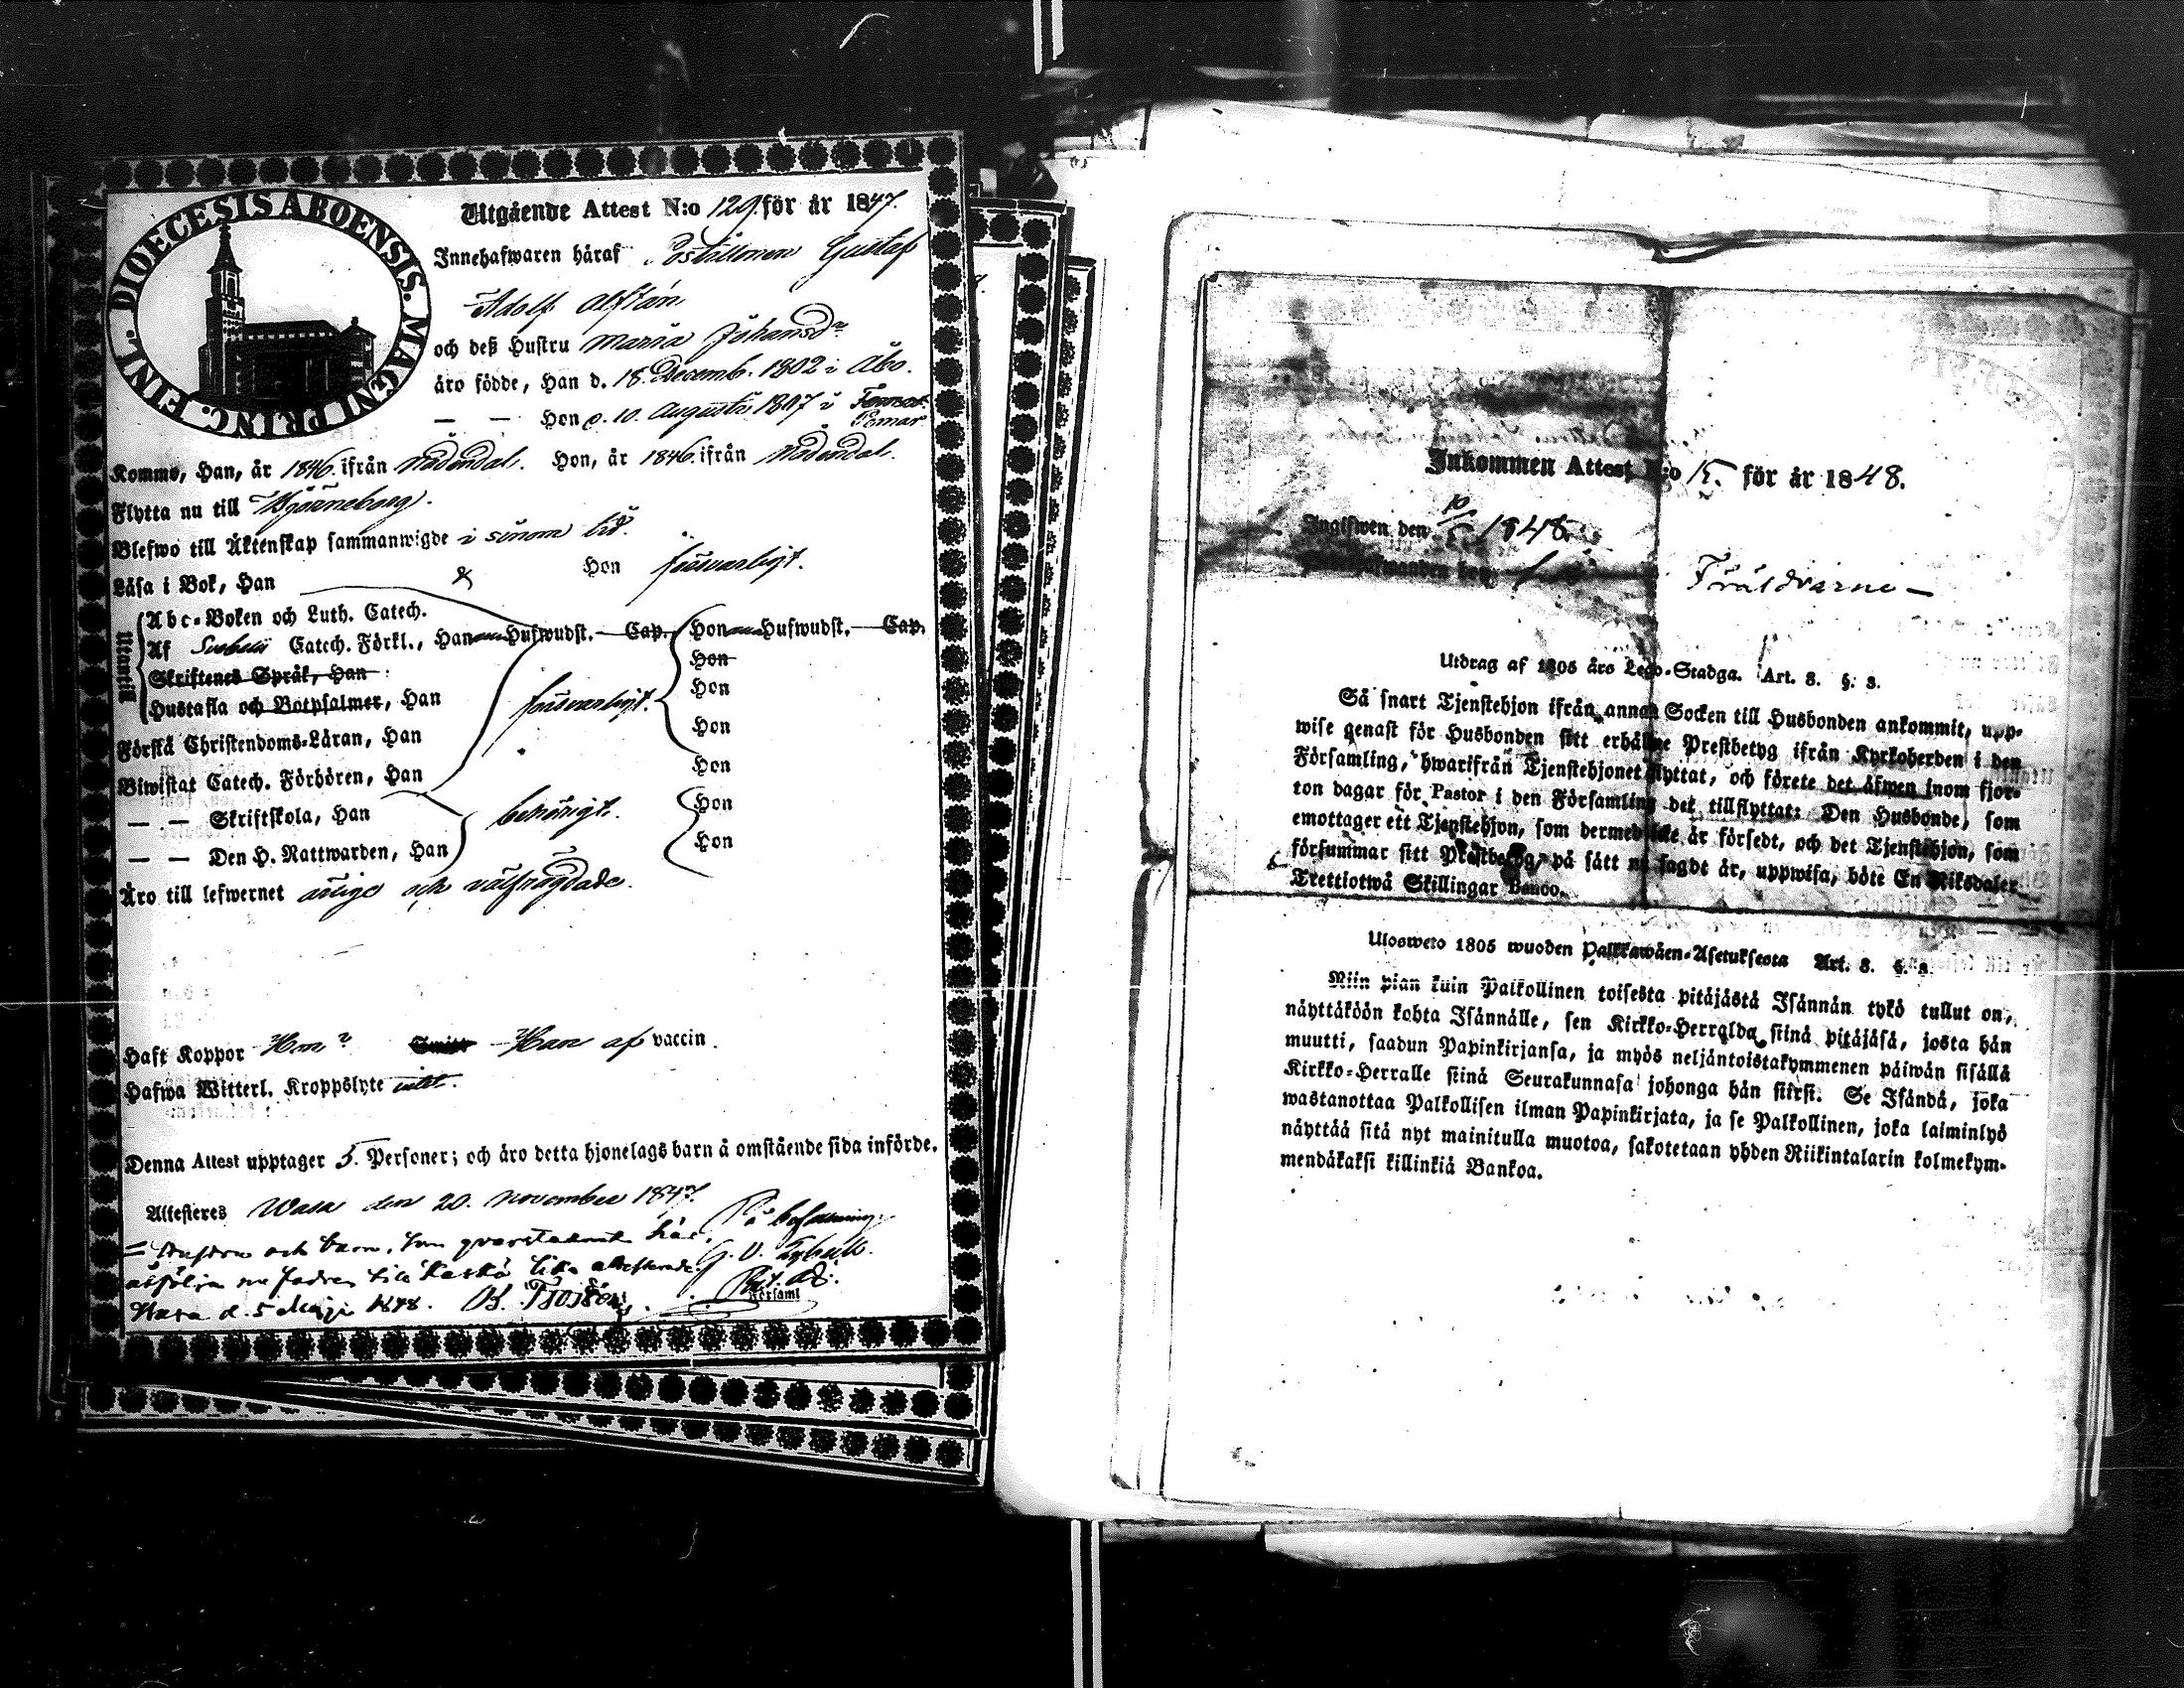 DIOECESIS ABOENSIS. MAGNI PRINC. FINL.
Utgående Attest N:o 129. för år 1847.
Innehafwaren häraf Postillonen Gustaf
Adolf
och deß Hustru Maria Johansdr
äro födde, Han d. 18. Decemb. 1802 i Åbo.
— — Hon d. 10. Augusti 1807 i
Pemar
Kommo, Han, år 1846. ifrån Nådendal. Hon, år 1846. ifrån Nådendal.
Flytta nu till Björneborg.
Blefwo till Äktenskap sammanwigde i sinom tid.
Läsa i Bok, Han Hon försvarligt.
Utantill
Abc-Boken och Luth. Catech.
Af Svebelii Catech. Förkl., Han Hufwudst. — Cap. Hon Hufwudst. — Cap.
Skriftenes Språk, Han Hon
Hustafla och Botpsalmer, Han försvarligt. Hon
Förstå Christendoms-Läran, Han Hon
Biwistat Catech. Förhören, Han Hon
— — Skriftskola, Han behörigt. Hon
— — Den H. Nattwarden, Han Hon
Äro till lefwernet ärlige och välfrägdade.
Haft Koppor Hon Han af vaccin.
Hafwa Witterl. Kroppslyte intet.
Denna Attest upptager 5. Personer; och äro detta hjonelags barn å omstående sida införde.
Attesteres Wasa den 20. November 1847.
På befallning
G. V.
Hustru och barn, som qvarstannat här,
åtfölja nu fadren till Kaskö lika attesterade
Församl
Wasa d. 5 Maji 1848.
Inkommen Attest N:o 15. för år 1848.
Ingifwen den 10/5 1848.
Föräldrarne —
Utdrag af 1805 års Lego-Stadga. Art. 8. §. 3.
Så snart Tjenstehjon ifrån annan Socken till Husbonden ankommit, upp-
wise genast för Husbonden sitt erhållne Prestbetyg ifrån Kyrkoherden i den
Församling, hwarifrån Tjenstehjonet flyttat, och förete det äfwen inom fjor-
ton dagar för Pastor i den Församling det tillflyttat: Den Husbonde, som
emottager ett Tjenstehjon, som dermed icke är försedt, och det Tjenstehjon, som
försummar sitt Prestbetyg, på sätt nu sagdt är, uppwisa, böte En Riksdaler
Trettiotwå Skillingar Banco.
Ulosweto 1805 wuoden Palkkawäen-Asetuksesta Art. 8. §. 3.
Niin pian kuin Palkollinen toisesta pitäjästä Isännän tykö tullut on,
näyttäköön kohta Isännälle, sen Kirkko-Herralda siinä pitäjäsä, josta hän
muutti, saadun Papinkirjansa, ja myös neljäntoistakymmenen päiwän sisällä
Kirkko-Herralle siinä Seurakunnasa johonga hän siirsi. Se Isändä, joka
wastanottaa Palkollisen ilman Papinkirjata, ja se Palkollinen, joka laiminlyö
näyttää sitä nyt mainitulla muotoa, sakotetaan yhden Riikintalarin kolmekym-
mendäkaksi killinkiä Bankoa.